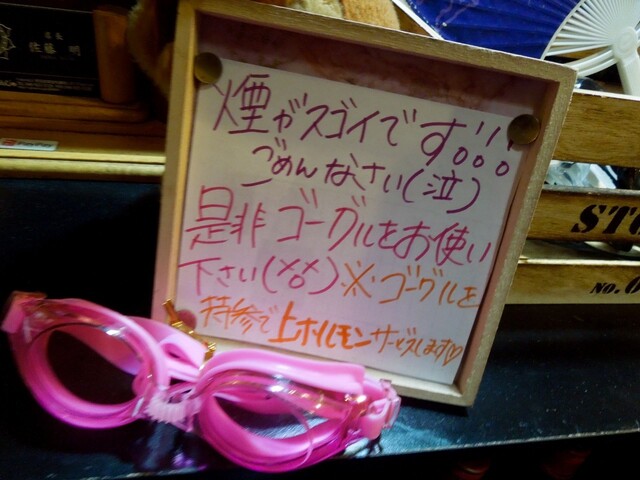 店長
佐藤 明
煙がスゴイです!!!
ごめんなさい(泣)
是非ゴーグルをお使い
下さい(×o×)※ゴーグルを
持参で上ホルモンサービスします♡
STO
NO.